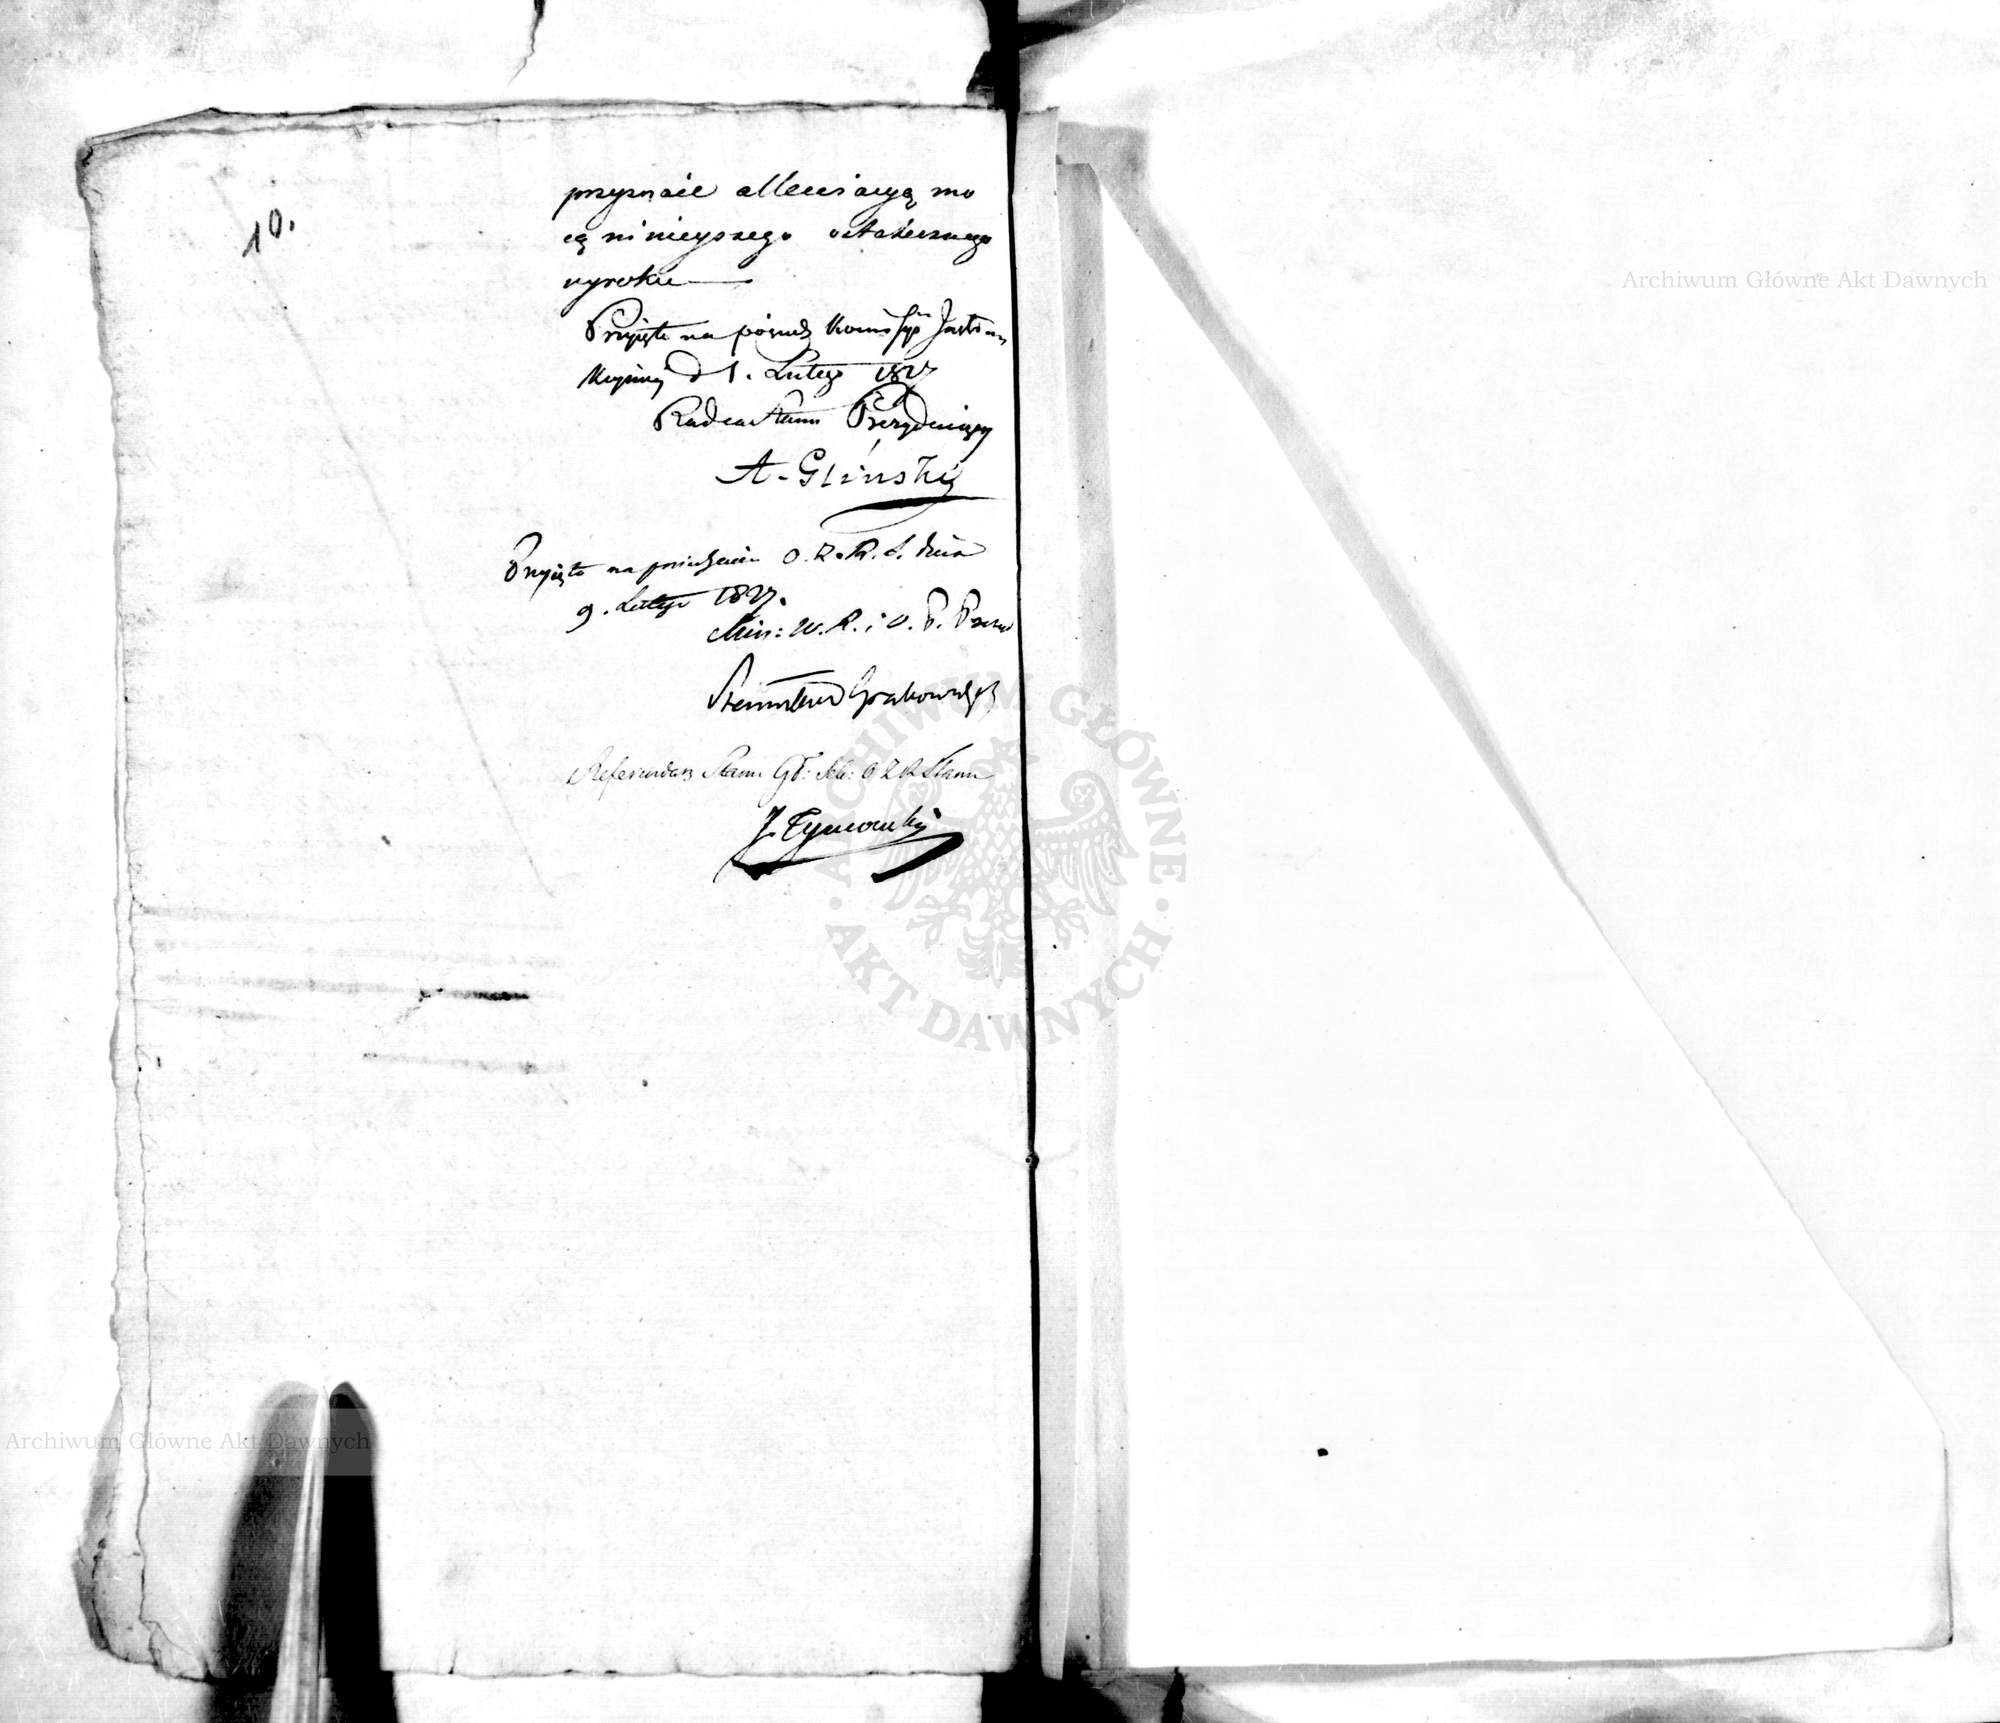 10.
przyznaie allewiacyą mo
cą ninieyszego ostatecznego
wyroku
Przyięto na posiedz
d 1. Lutego 1827
Radca Stanu Prezyduiący
A. Gliński
Przyięto na posiedzeniu O. Z. R. S. dnia
9. Lutego 1827.
Min: W. R. i O. P. Prezed
Stanisław Grabowski
Referendarz Stanu Gł: Sek: O Z R Stanu
J. Tymowski
Archiwum Główne Akt Dawnych
ARCHIWUM GŁÓWNE · AKT DAWNYCH ·
Archiwum Główne Akt Dawnych